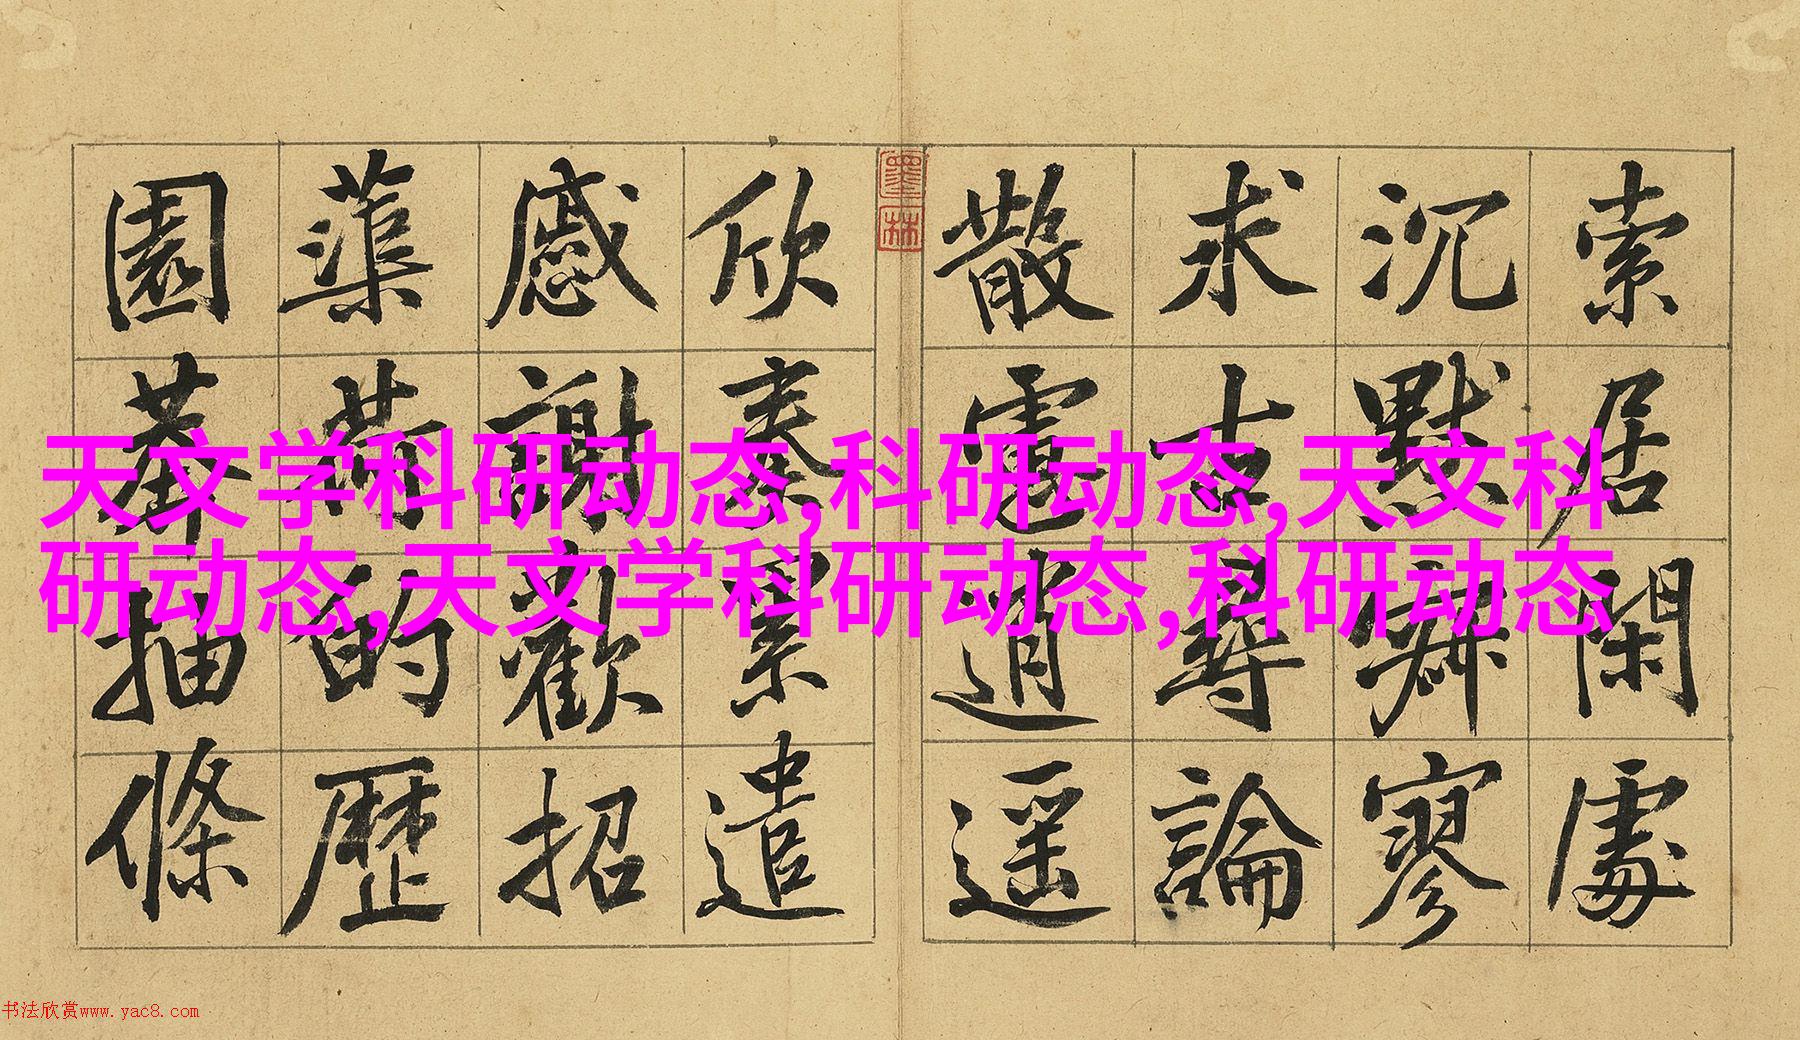 天文学科研动态,科研动态,天文科
研动态,天文学科研动态,科研动态
索居閑處
沉默寥
求古尋論
散慮逍遥
欣奏累遣
慼謝歡招
蕖荷的歷
園莽抽條
墨林
书法欣赏www.yac8.com